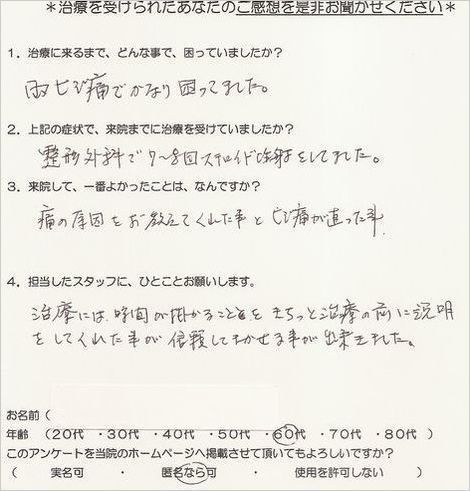 ＊治療を受けられたあなたのご感想を是非お聞かせください＊
1．治療に来るまで、どんな事で、困っていましたか？
両ヒジ痛でかなり困ってました。
2．上記の症状で、来院までに治療を受けていましたか？
整形外科で7〜8回ステロイド注射をしてました。
3．来院して、一番よかったことは、なんですか？
痛の原因をお教えてくれた事とヒジ痛が直った事
4．担当したスタッフに、ひとことお願いします。
治療には時間が掛かることをきちっと治療の前に説明
をしてくれた事が信頼してまかせる事が出来ました。
お名前（
年齢 （20代 ・30代 ・40代 ・50代 ・60代 ・70代 ・80代 ）
このアンケートを当院のホームページへ掲載させて頂いてもよろしいですか？
（ 実名可 ・ 匿名なら可 ・ 使用を許可しない ）